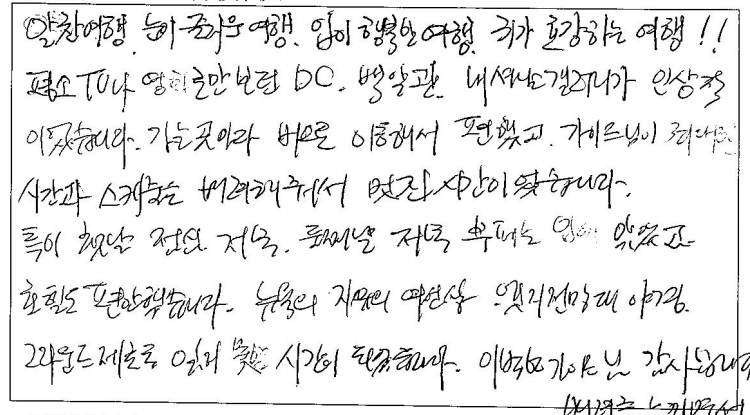 알찬여행, 눈이 즐거운 여행, 입이 행복한 여행, 귀가 호강하는 여행 !!
평소 TV나 영화로만 보던 DC, 백악관, 내셔널갤러리가 인상적
이었습니다. 가는곳마다 버스로 이동해서 편했고, 가이드님이 최대한
시간과 스케줄을 배려해주셔서 멋진 시간이었습니다.
특히 첫날 점심 저녁, 둘째날 저녁 부페는 입에 맞았고
호텔도 편안했습니다. 뉴욕의 자유의 여신상 엣지전망대 야경,
그라운드제로 잊지 못할 시간이 되었습니다. 가이드님 감사합니다